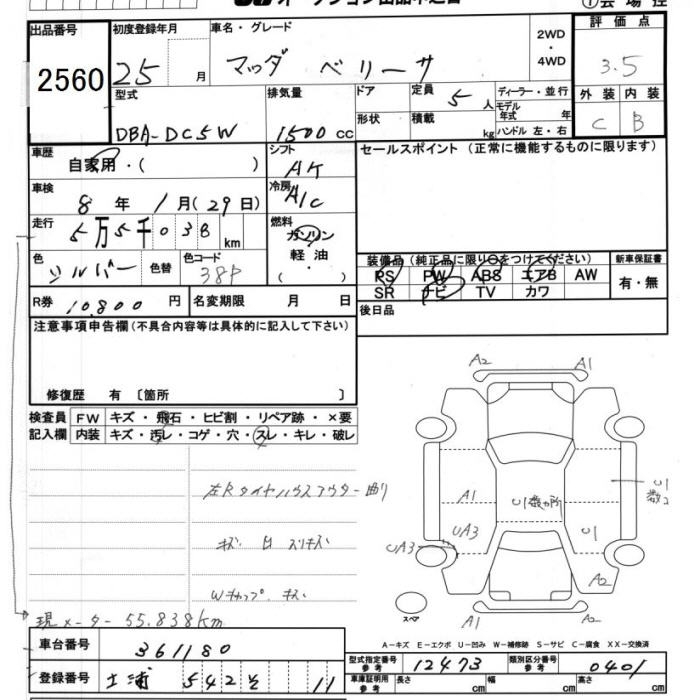 出品番号 2560
初度登録年月 25 月
車名・グレード マツダ ベリーサ
2WD・4WD
評価点 3.5
型式 DBA-DC5W
排気量 1500 cc
ドア
形状
定員 5 人
積載 kg
ディーラー・並行
モデル年式 年
ハンドル 左・右
外装 内装
C B
車歴 自家用・( )
シフト AK
セールスポイント (正常に機能するものに限ります)
車検 8 年 1 月 (29 日)
冷房 A/C
走行 5万5千038 km
燃料 ガソリン
軽油
( )
色 シルバー 色替 色コード 38P
装備品 (純正品に限り○をつけてください) 新車保証書
PS PW ABS エアB AW 有・無
SR ナビ TV カワ
R券 10.800 円 名変期限 月 日
後日品
注意事項申告欄 (不具合内容等は具体的に記入して下さい)
修復歴 有 〔箇所 〕
検査員 FW キズ・飛石・ヒビ割・リペア跡・×要
記入欄 内装 キズ・汚レ・コゲ・穴・スレ・キレ・破レ
左Rタイヤハウスアウター曲り
キズ 凹 スリキズ
Wキャップ キズ
現メーター 55.838km
A2 A1
A1 C1数ヵ所 C1 数2
UA3 C1
UA3
A2
スペア A1 A2
A-キズ E-エクボ U-凹み W-補修跡 S-サビ C-腐食 XX-交換済
車台番号 361180
型式指定番号 参考 12473 類別区分番号 参考 0401
登録番号 土浦 542 そ 11
車庫証明用 参考 長さ cm 幅 cm 高さ cm